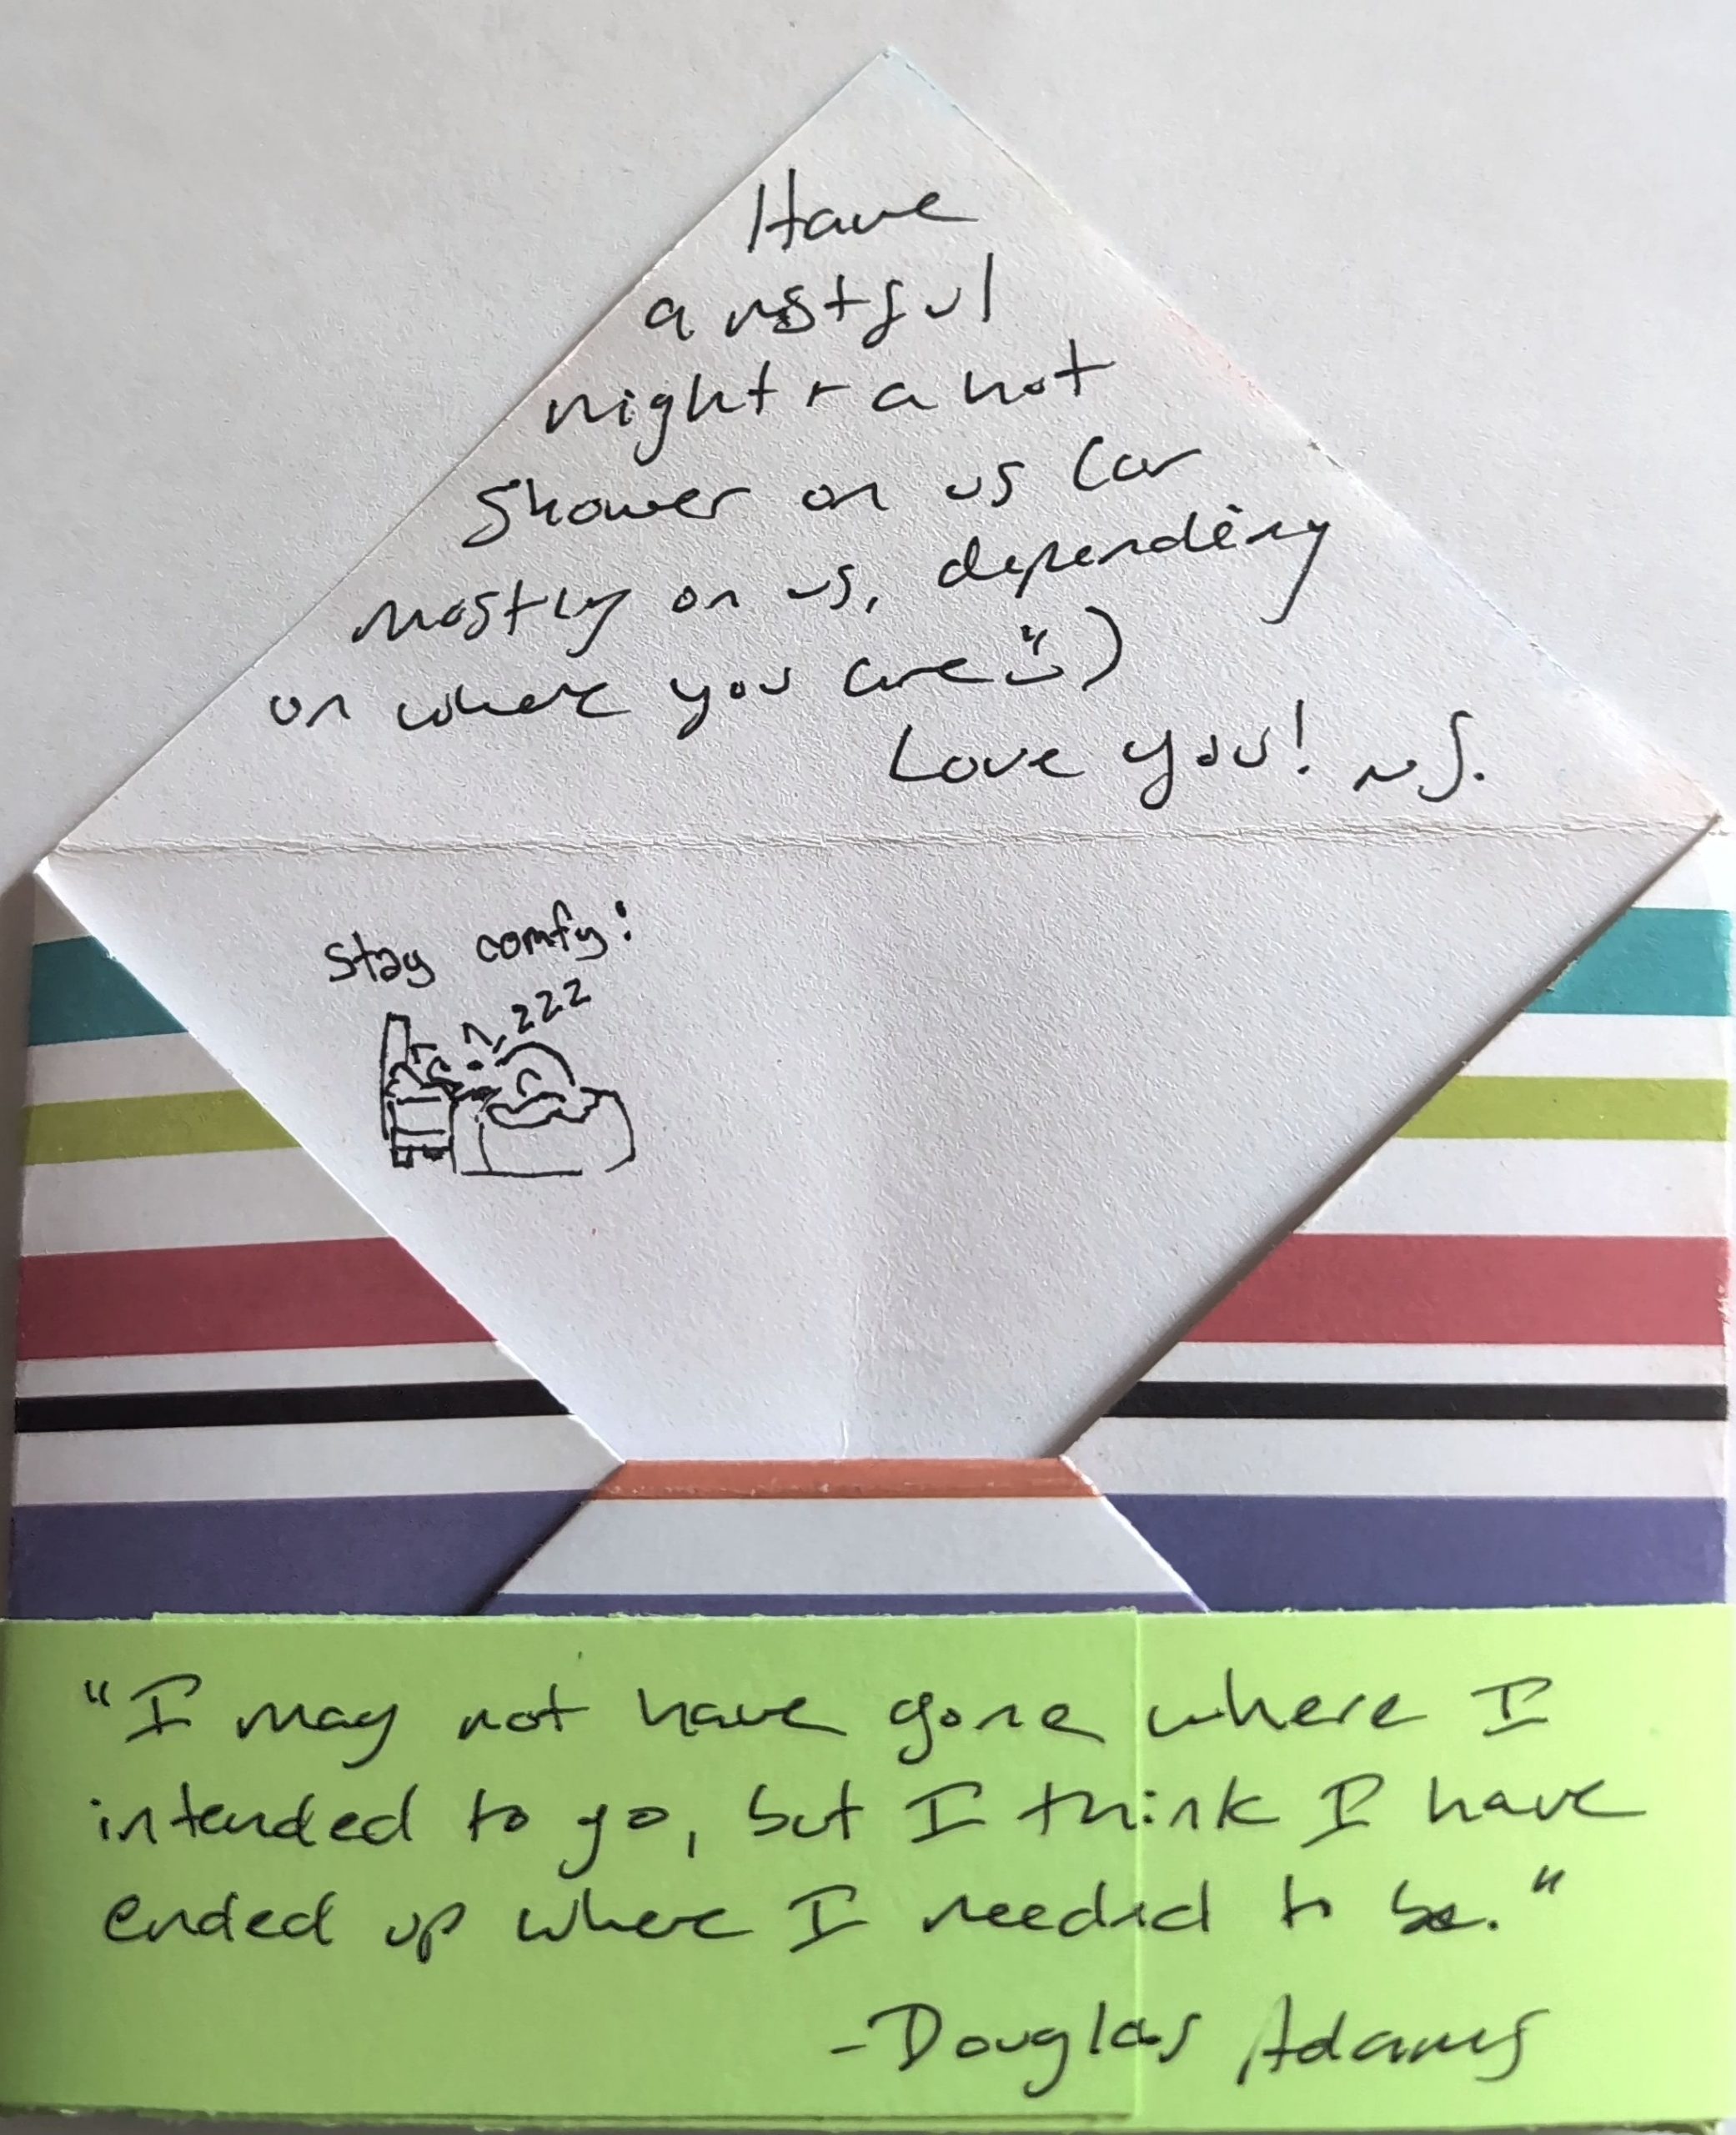 Have
a restful
night + a hot
shower on us (or
mostly on us, depending
on where you are :)
Love you! ~J.
stay comfy:
zzz
"I may not have gone where I
intended to go, but I think I have
ended up where I needed to be."
-Douglas Adams